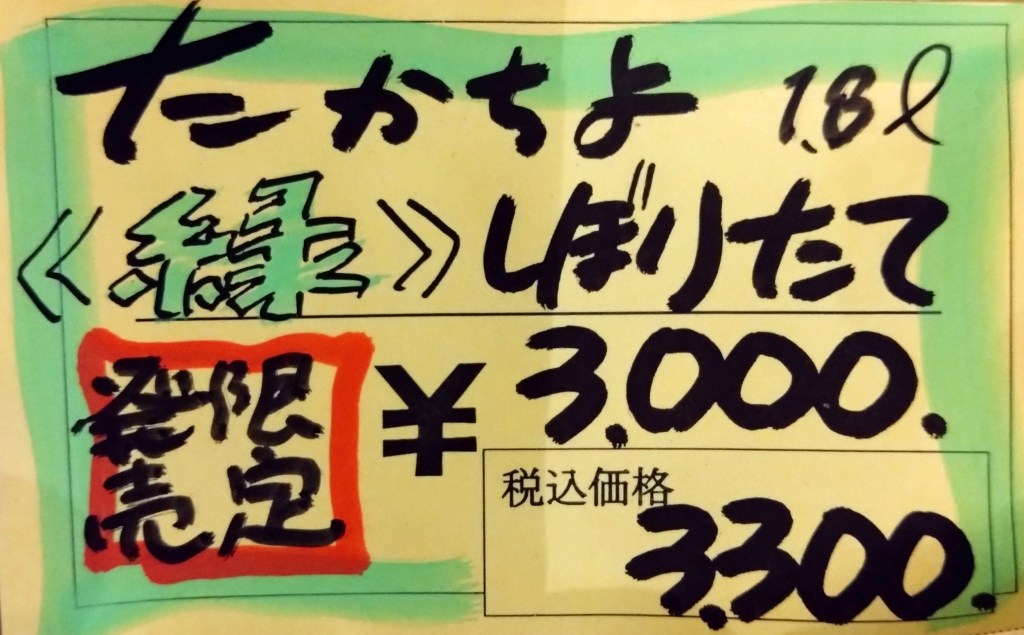 たかちよ 1.8ℓ
《緑》しぼりたて
限定
発売
¥3,000.
税込価格
3,300.